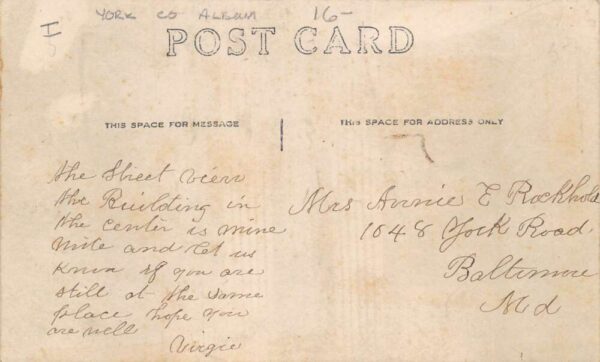 I
YORK CO ALBUM 16-
POST CARD
THIS SPACE FOR MESSAGE
THIS SPACE FOR ADDRESS ONLY
the Street view
the Building in
the center is mine
write and let us
know if you are
still at the same
place hope you
are well
Virgie
Mrs Annie E Rockhold
1048 York Road.
Baltimore
Md